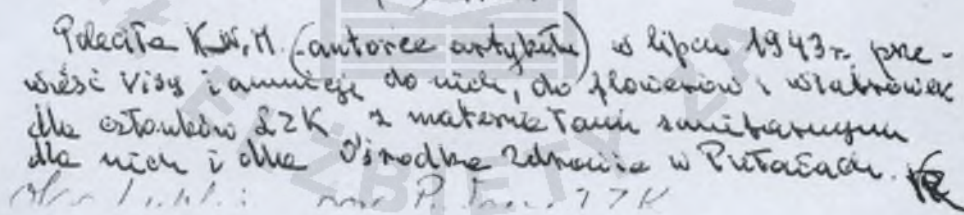 Poleciła K.W.M. (autorce artykułu) w lipcu 1943 r. prze-
wieźć Visy i amunicję do nich, do flowerów i wiatrówek
dla członków LZK z materiałami sanitarnym
dla nich i dla Ośrodka Zdrowia w Puławach.